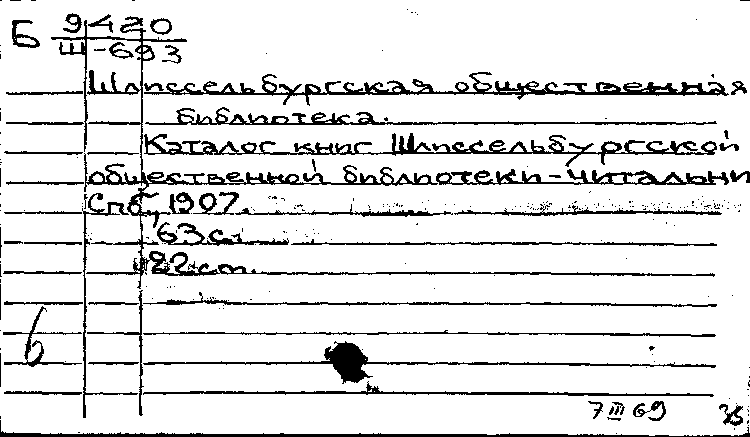 Б 9420
Ш-693
Шлиссельбургская общественная
библиотека.
Каталог книг Шлиссельбургской
общественной библиотеки-читальни
Спб, 1907.
63 с.
22 cm.
6
7 III 69 35